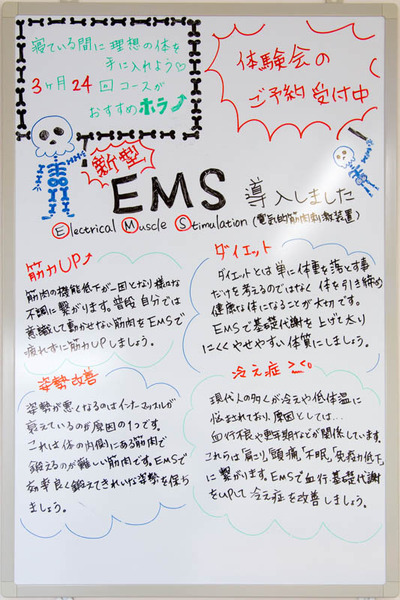 寝ている間に理想の体を
手に入れよう♡
3ヶ月24回コースが
おすすめホラ
体験会の
ご予約受付中
新型
EMS 導入しました
Electrical Muscle Stimulation (電気的筋肉刺激装置)
筋力UP↑
筋肉の機能低下が一因となり様々な
不調に繋がります。普段自分では
意識して動かせない筋肉をEMSで
疲れずに筋力UPしましょう。
ダイエット
ダイエットとは単に体重を落とす事
だけを考えるのではなく体を引き締め
健康な体になることが大切です。
EMSで基礎代謝を上げて太り
にくくやせやすい体質にしましょう。
姿勢改善
姿勢が悪くなるのはインナーマッスルが
衰えているのが原因の1つです。
これは体の内側にある筋肉で
鍛えるのが難しい筋肉です。EMSで
効率良く鍛えてきれいな姿勢を保ち
ましょう。
冷え症 >_<。
現代人の多くが冷えや低体温に
悩まされており、原因としては…
血行不良や更年期などが関係しています。
これらは「肩こり」「頭痛」「不眠」「免疫力低下」
に繋がります。EMSで血行、基礎代謝
をUPして冷え症を改善しましょう。